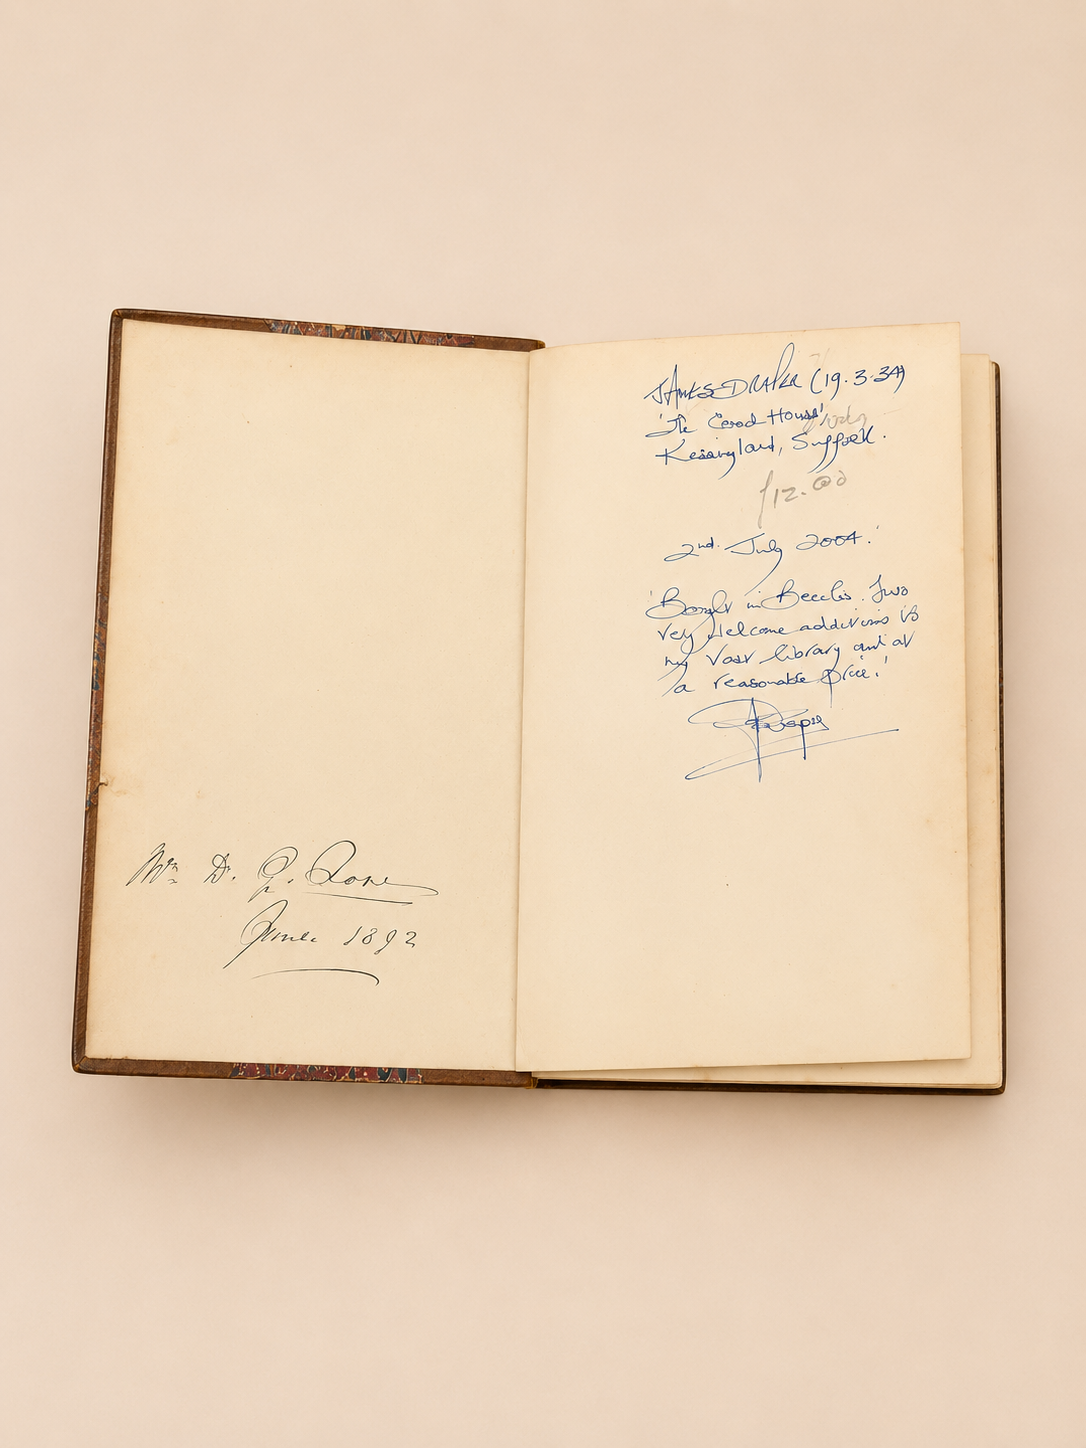 Mrs D. G. Rose
June 1892
JAMES DRAPER (19.3.34)
'The Good House'
Kessingland, Suffolk.
£12.00
2nd July 2004.'
'Bought in Beccles. Two
very welcome additions to
my vast library and at
a reasonable price.'